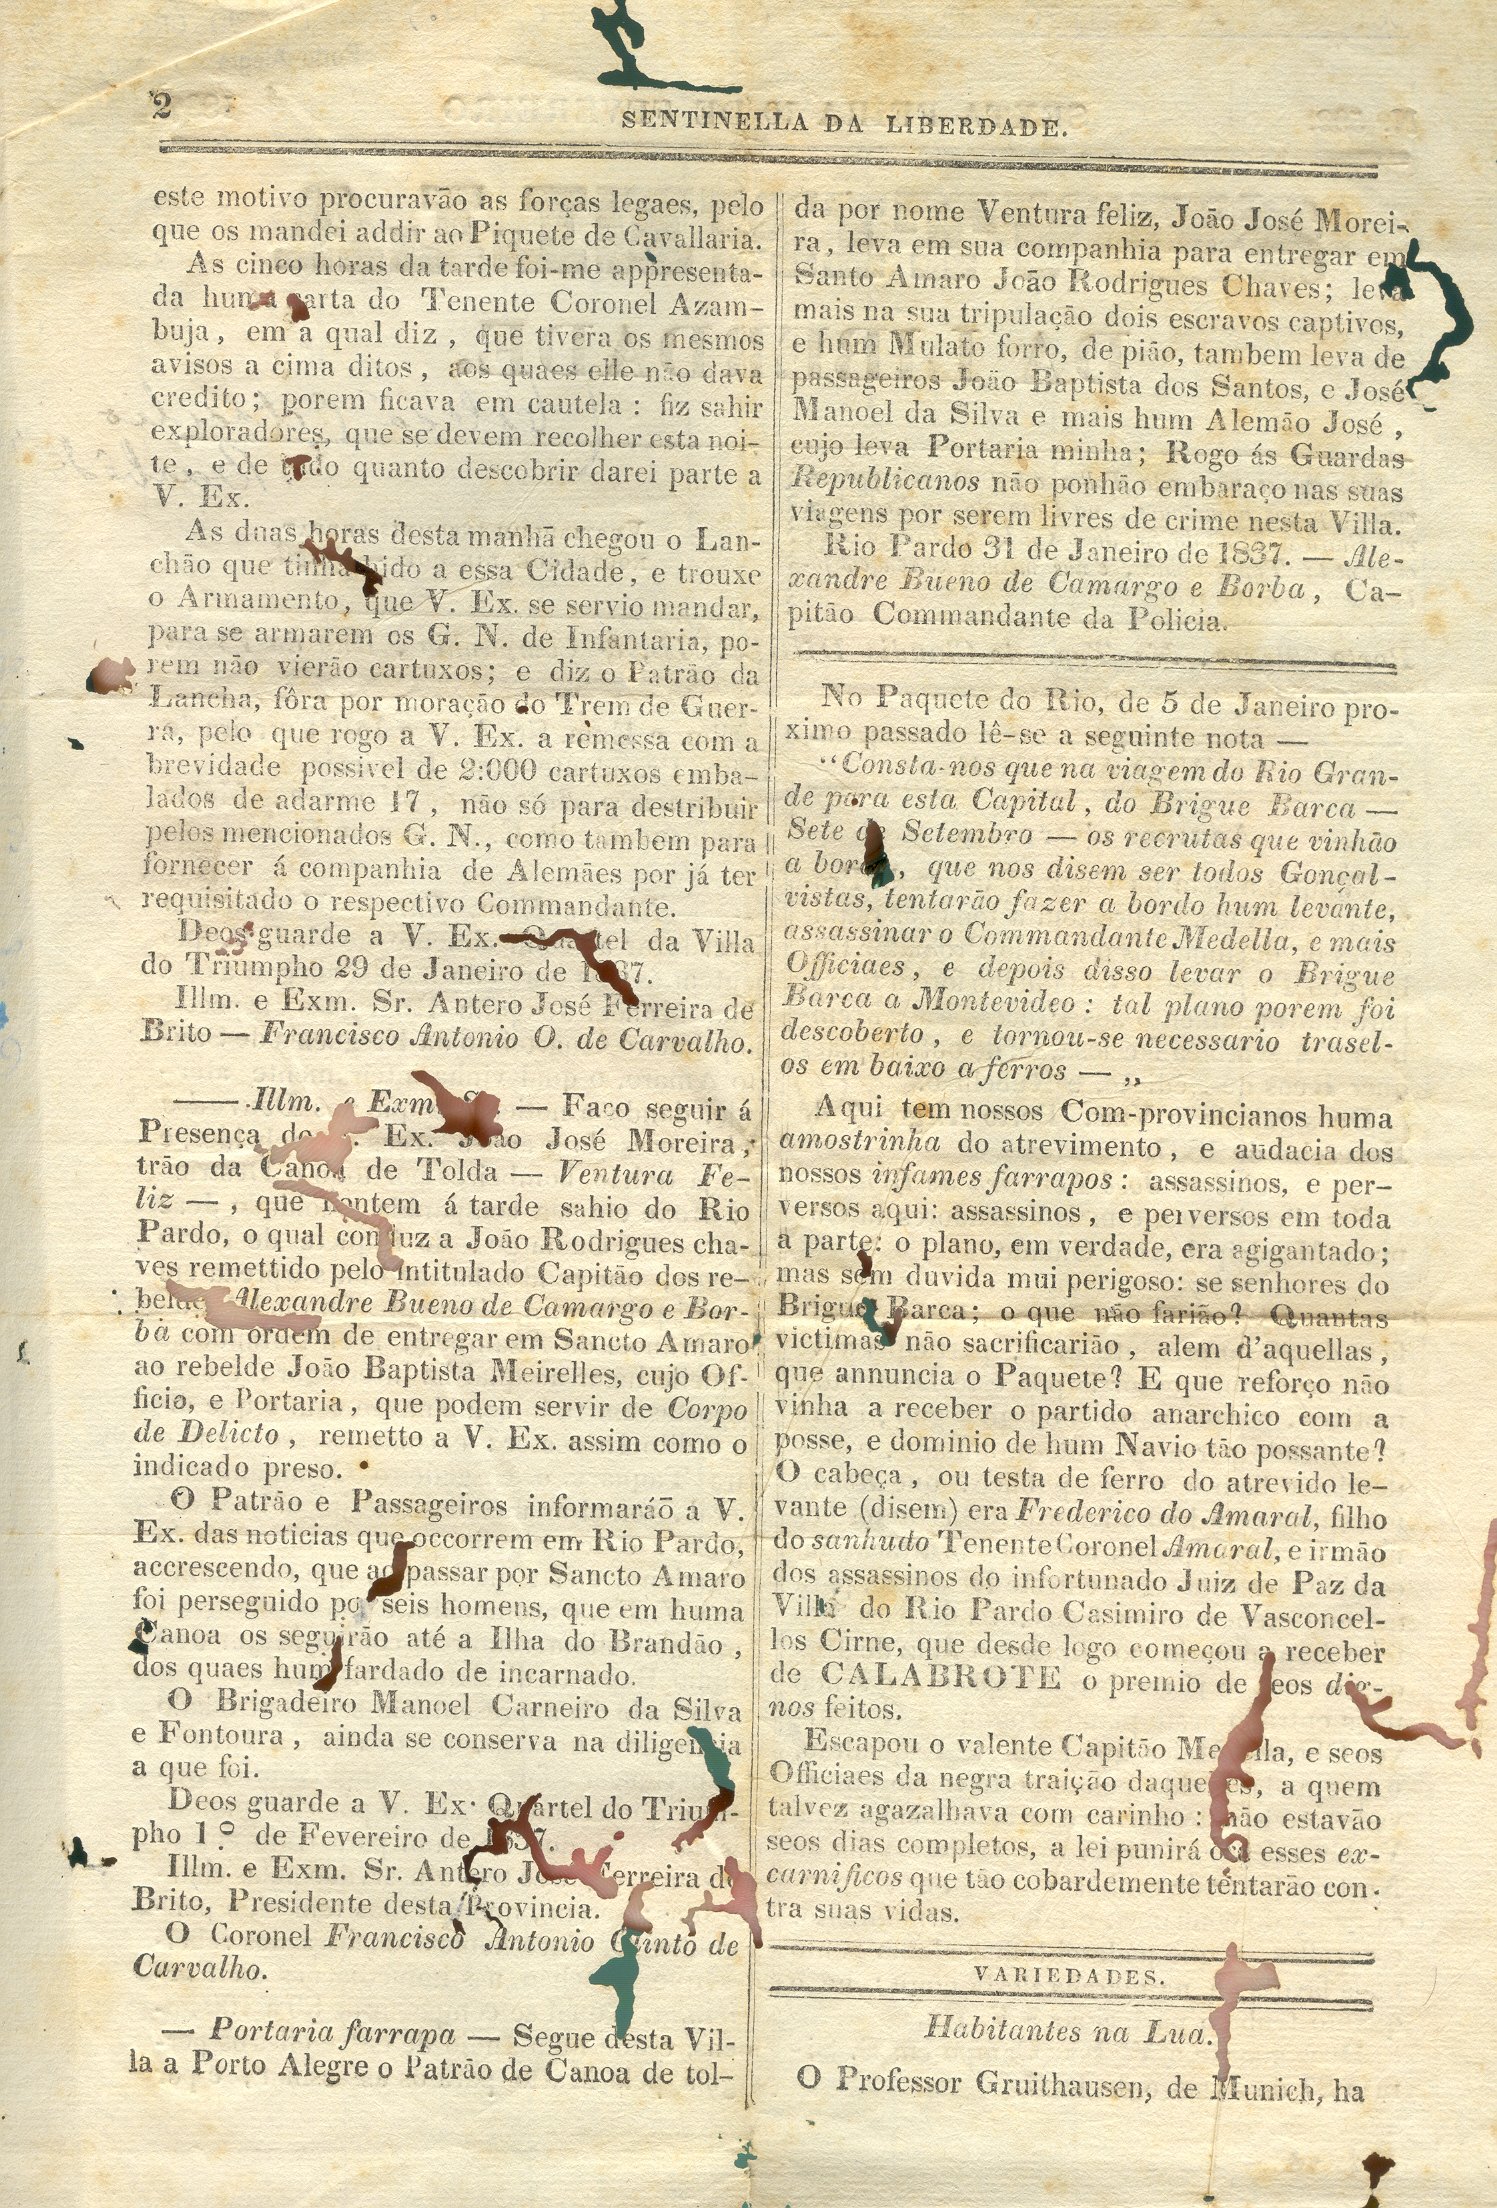 2
SENTINELLA DA LIBERDADE.
este motivo procuravão as forças legaes, pelo
que os mandei addir ao Piquete de Cavallaria.
As cinco horas da tarde foi-me appresenta-
da huma carta do Tenente Coronel Azam-
buja, em a qual diz, que tivera os mesmos
avisos a cima ditos, aos quaes elle não dava
credito; porem ficava em cautela: fiz sahir
exploradores, que se devem recolher esta noi-
te, e de tudo quanto descobrir darei parte a
V. Ex.
As duas horas desta manhã chegou o Lan-
chão que tinha hido a essa Cidade, e trouxe
o Armamento, que V. Ex. se servio mandar,
para se armarem os G. N. de Infantaria, po-
rem não vierão cartuxos; e diz o Patrão da
Lancha, fôra por moração do Trem de Guer-
ra, pelo que rogo a V. Ex. a remessa com a
brevidade possivel de 2:000 cartuxos emba-
lados de adarme 17, não só para destribuir
pelos mencionados G. N., como tambem para
fornecer á companhia de Alemães por já ter
requisitado o respectivo Commandante.
Deos guarde a V. Ex. Quartel da Villa
do Triumpho 29 de Janeiro de 1837.
Illm. e Exm. Sr. Antero José Ferreira de
Brito — Francisco Antonio O. de Carvalho.
—— Illm. e Exm. Sr. — Faço seguir á
Presença de V. Ex. João José Moreira,
trão da Canoa de Tolda — Ventura Fe-
liz —, que hontem á tarde sahio do Rio
Pardo, o qual conduz a João Rodrigues cha-
ves remettido pelo intitulado Capitão dos re-
beldes Alexandre Bueno de Camargo e Bor-
ba com ordem de entregar em Sancto Amaro
ao rebelde João Baptista Meirelles, cujo Of-
ficio, e Portaria, que podem servir de Corpo
de Delicto, remetto a V. Ex. assim como o
indicado preso.
O Patrão e Passageiros informaráõ a V.
Ex. das noticias que occorrem em Rio Pardo,
accrescendo, que ao passar por Sancto Amaro
foi perseguido por seis homens, que em huma
Canoa os seguirão até a Ilha do Brandão,
dos quaes hum fardado de incarnado.
O Brigadeiro Manoel Carneiro da Silva
e Fontoura, ainda se conserva na diligencia
a que foi.
Deos guarde a V. Ex. Quartel do Trium-
pho 1.º de Fevereiro de 1837.
Illm. e Exm. Sr. Antero José Ferreira de
Brito, Presidente desta Provincia.
O Coronel Francisco Antonio Olinto de
Carvalho.
— Portaria farrapa — Segue desta Vil-
la a Porto Alegre o Patrão de Canoa de tol-
da por nome Ventura feliz, João José Morei-
ra, leva em sua companhia para entregar em
Santo Amaro João Rodrigues Chaves; leva
mais na sua tripulação dois escravos captivos,
e hum Mulato forro, de pião, tambem leva de
passageiros João Baptista dos Santos, e José
Manoel da Silva e mais hum Alemão José,
cujo leva Portaria minha; Rogo ás Guardas
Republicanos não ponhão embaraço nas suas
viagens por serem livres de crime nesta Villa.
Rio Pardo 31 de Janeiro de 1837. — Ale-
xandre Bueno de Camargo e Borba, Ca-
pitão Commandante da Policia.
No Paquete do Rio, de 5 de Janeiro pro-
ximo passado lê-se a seguinte nota —
“Consta-nos que na viagem do Rio Gran-
de para esta Capital, do Brigue Barca —
Sete de Setembro — os recrutas que vinhão
a bordo, que nos disem ser todos Gonçal-
vistas, tentarão fazer a bordo hum levante,
assassinar o Commandante Medella, e mais
Officiaes, e depois disso levar o Brigue
Barca a Montevideo: tal plano porem foi
descoberto, e tornou-se necessario trasel-
os em baixo a ferros — „
Aqui tem nossos Com-provincianos huma
amostrinha do atrevimento, e audacia dos
nossos infames farrapos: assassinos, e per-
versos aqui: assassinos, e perversos em toda
a parte: o plano, em verdade, era agigantado;
mas sem duvida mui perigoso: se senhores do
Brigue Barca; o que não farião? Quantas
victimas não sacrificarião, alem d'aquellas,
que annuncia o Paquete? E que reforço não
vinha a receber o partido anarchico com a
posse, e dominio de hum Navio tão possante?
O cabeça, ou testa de ferro do atrevido le-
vante (disem) era Frederico do Amaral, filho
do sanhudo Tenente Coronel Amaral, e irmão
dos assassinos do infortunado Juiz de Paz da
Villa do Rio Pardo Casimiro de Vasconcel-
los Cirne, que desde logo começou a receber
de CALABROTE o premio de seos dig-
nos feitos.
Escapou o valente Capitão Medella, e seos
Officiaes da negra traição daquelles, a quem
talvez agazalhava com carinho: não estavão
seos dias completos, a lei punirá ora esses ex-
carnificos que tão cobardemente tentarão con-
tra suas vidas.
VARIEDADES.
Habitantes na Lua.
O Professor Gruithausen, de Munich, ha